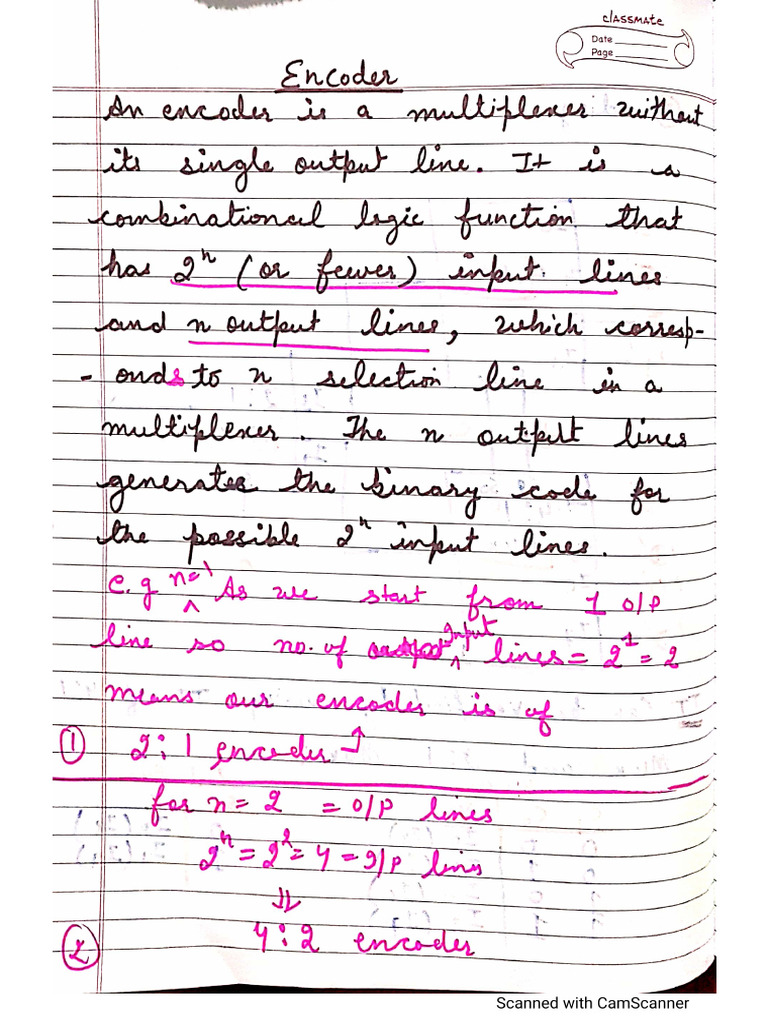 classmate
Date
Page
Encoder
An encoder is a multiplexer without
its single output line. It is a
combinational logic function that
has 2^n (or fewer) input lines
and n output lines, which corresp-
- onds to n selection line in a
multiplexer. The n output lines
generates the binary code for
the possible 2^n input lines.
e.g n=1 As we start from 1 O/P
line so no. of Input lines = 2^1 = 2
means our encoder is of
① 2:1 encoder
for n = 2 = O/P lines
2^n = 2^2 = 4 = I/P lines
⇓
② 4:2 encoder
Scanned with CamScanner